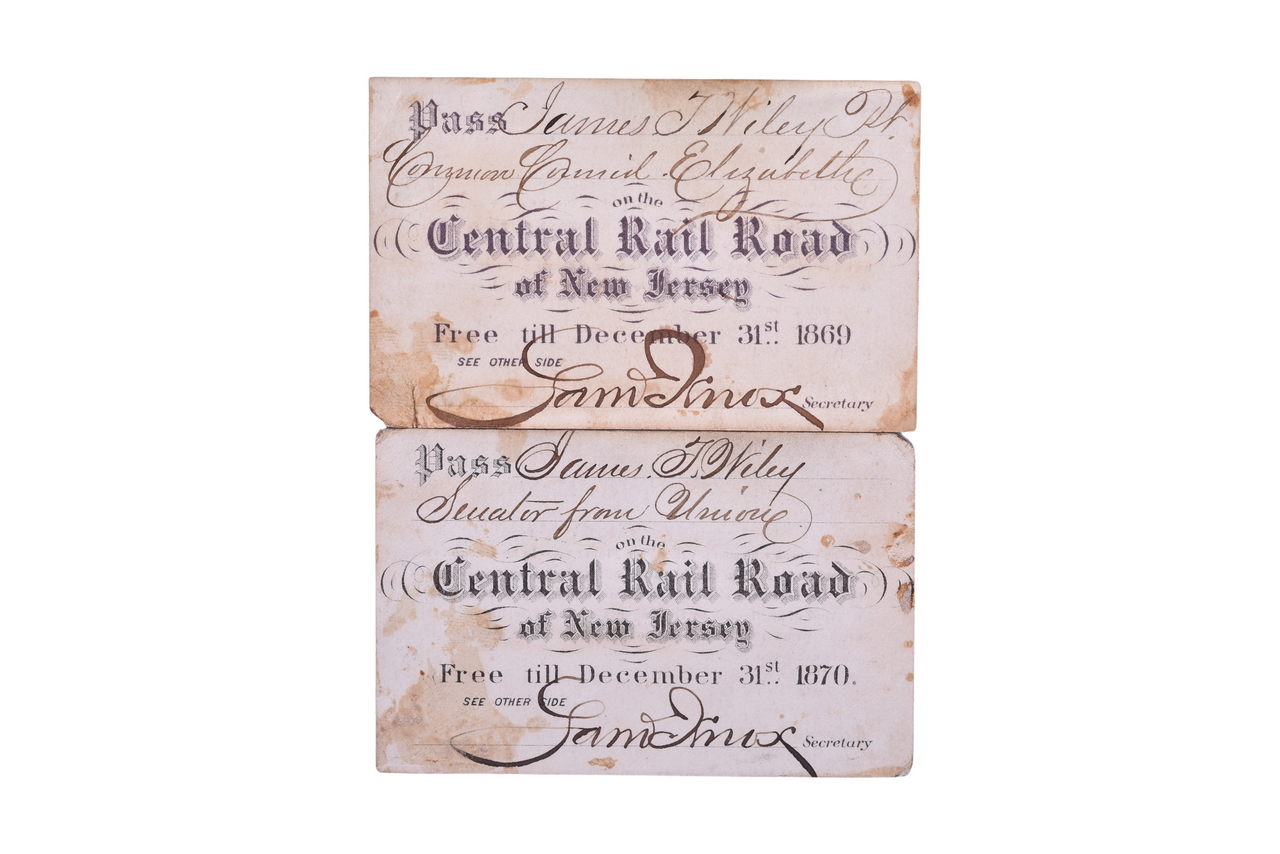 Pass James T. Wiley Pt.
Common Council Elizabeth
on the
Central Rail Road
of New Jersey
Free till December 31st 1869
SEE OTHER SIDE
Sam Knox Secretary
Pass James T. Wiley
Senator from Union
on the
Central Rail Road
of New Jersey
Free till December 31st 1870.
SEE OTHER SIDE
Sam Knox Secretary